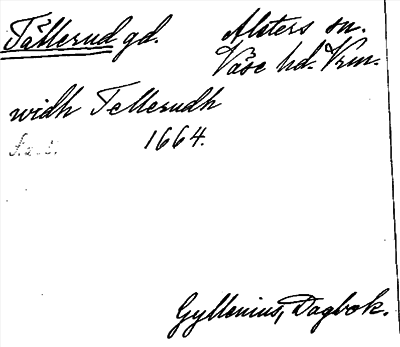 Tällerud gd. Alsters sn.
Väse hd. Vrm.
widh Tellerudh
1664.
Gyllenius, Dagbok.